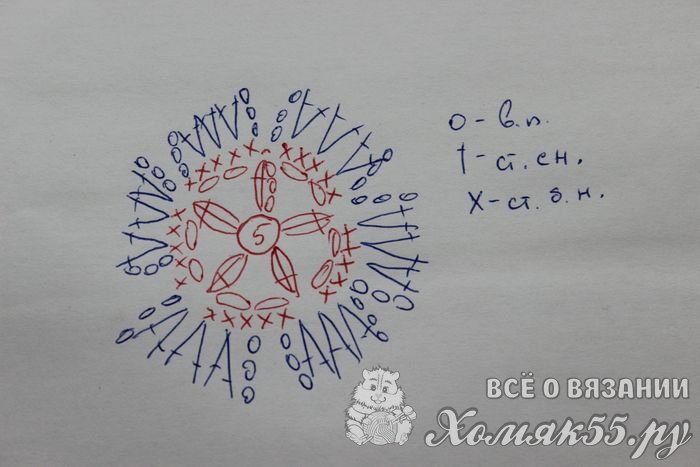 5
o - в.п.
† - ст. сн.
x - ст. б. н.
ВСЁ О ВЯЗАНИИ
Хомяк55.ру